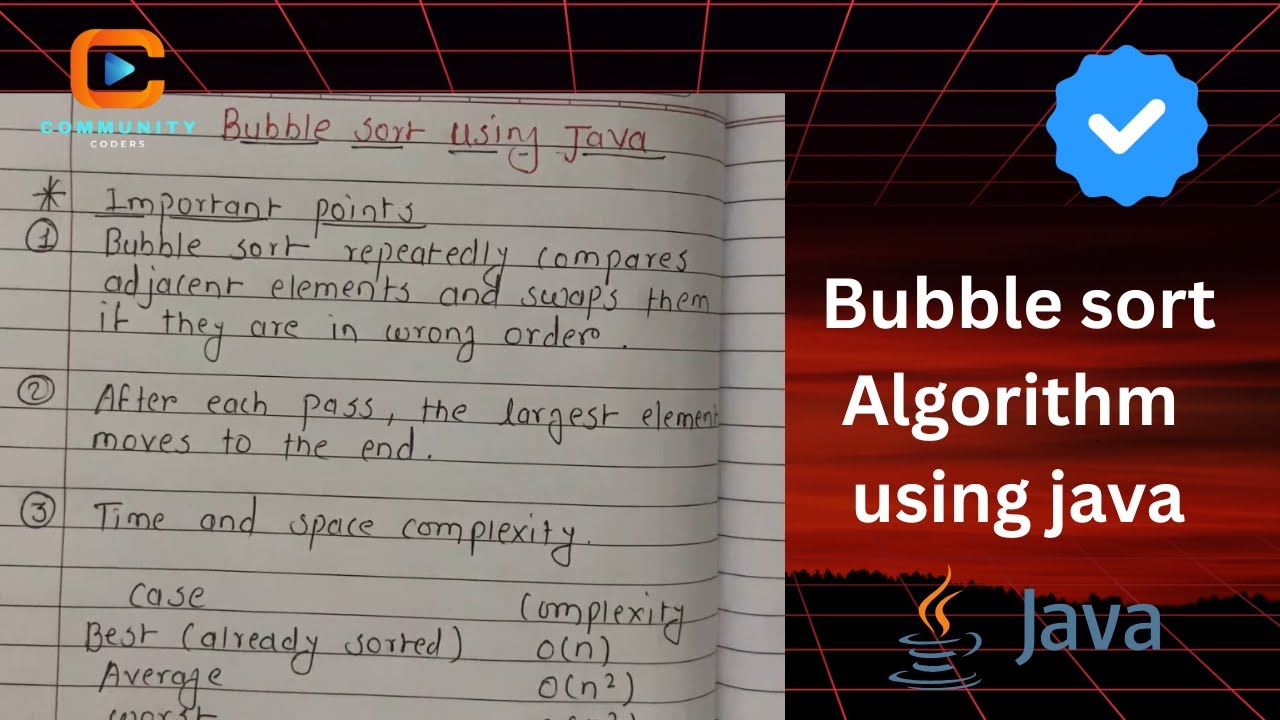 COMMUNITY
CODERS
Bubble sort using Java
* Important points
① Bubble sort repeatedly compares
adjacent elements and swaps them
if they are in wrong order.
② After each pass, the largest element
moves to the end.
③ Time and space complexity.
case Complexity
Best (already sorted) O(n)
Average O(n²)
worst
Bubble sort
Algorithm
using java
Java